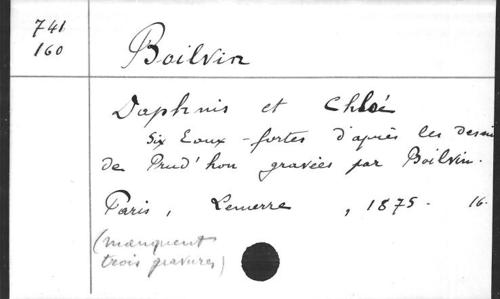 741
160
Boilvin
Daphnis et Chloé
Six Eaux-fortes d'après les dessin
de Prud'hon gravées par Boilvin.
Paris, Lemerre, 1875. 16.
(manquent
trois gravures)